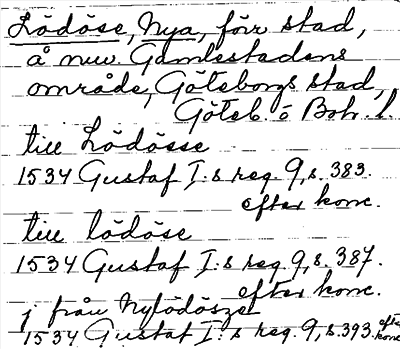 Lödöse, Nya, förr stad,
å nuv. Gamlestadens
område, Göteborgs stad,
Göteb. o Boh. l.
till Lödösse
1534 Gustaf I:s reg. 9, s. 383.
efter konc.
till lödöse
1534 Gustaf I:s reg. 9, s. 387.
efter konc.
j från Nylödösze
1534 Gustaf I:s reg. 9, s. 393. efter
konc.